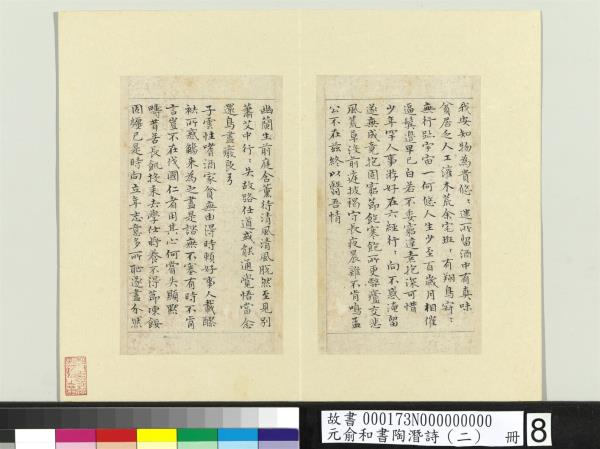 我安知物為貴悠〻迷所留酒中有真味
貧居乏人工灌木荒余宅班〻有翔鳥寂〻
無行趾宇宙一何悠人生少至百歲月相催
逼鬢邊早已白若不委窮達素抱深可惜
少年罕人事游好在六經行〻向不惑淹留
遂無成竟抱固窮節飽寒飽所更弊廬交悲
風荒草沒前庭披褐守長夜晨雞不肯鳴孟
公不在茲終以翳吾情
幽蘭生前庭含薰待清風清風脫然至見別
蕭艾中行〻失故路任道或能通覺悟當念
還鳥盡廢良弓
子雲性嗜酒家貧無由得時賴好事人載醪
袪所惑觴來為之盡是諮無不塞有時不肯
言豈不在伐國仁者用其心何嘗失顯默
疇昔苦長飢投耒去學仕將養不得節凍餒
固纏己是時向立年志意多所恥遂盡介然
故書 000173N000000000
元俞和書陶潛詩(二) 冊
8